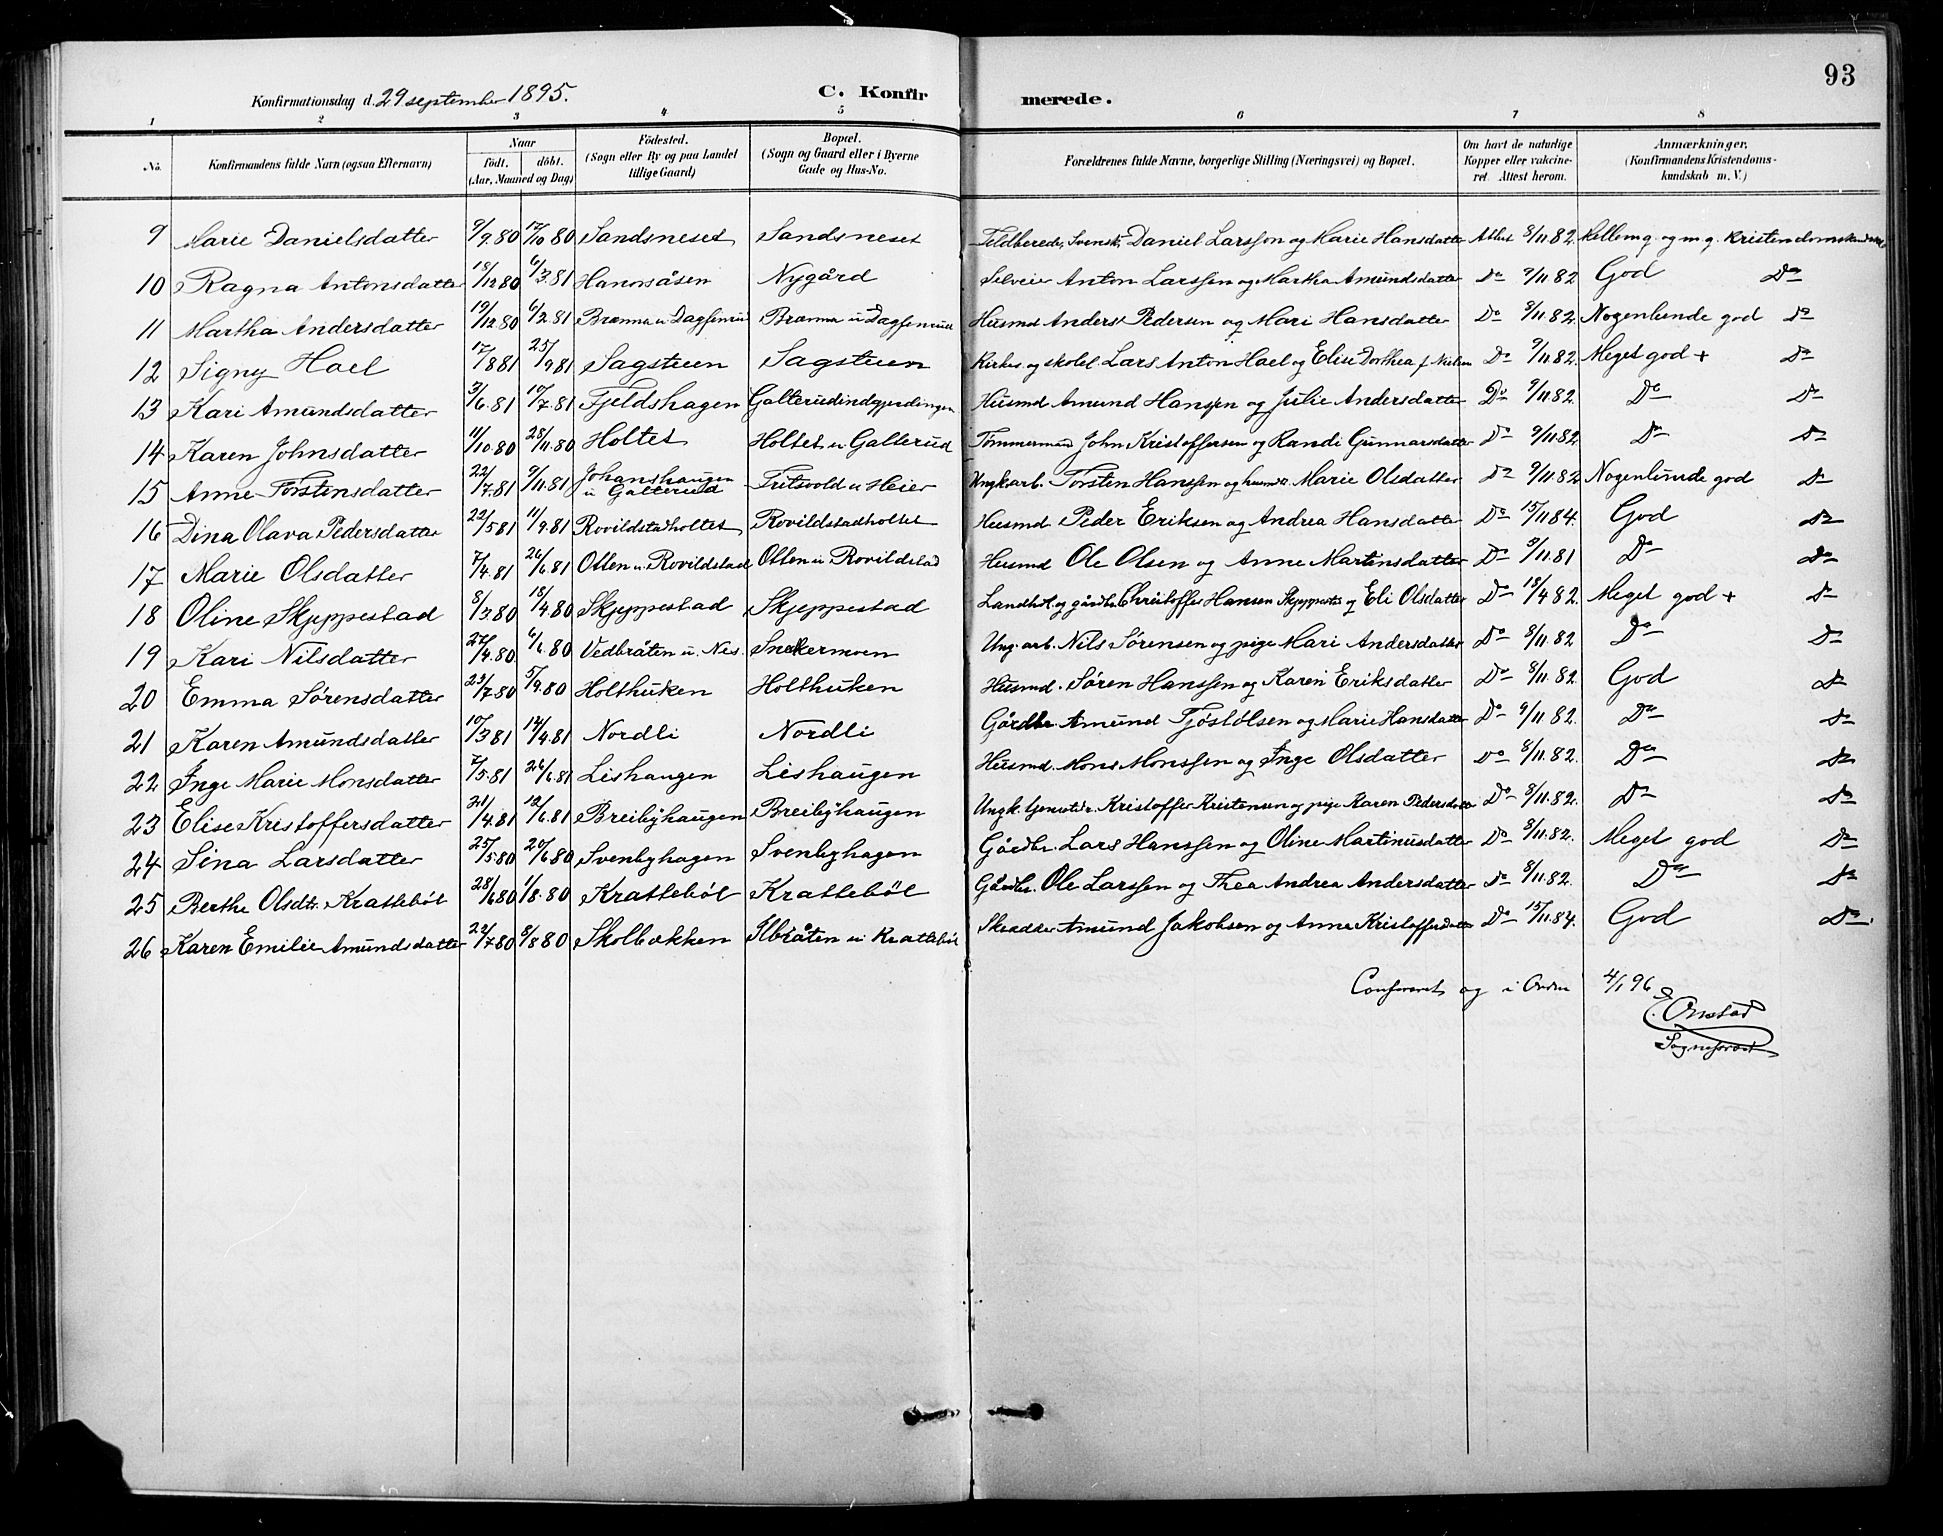 93
Konfirmationsdag d. 29 september 1895. C. Konfirmerede.
1 2 3 4 5 6 7 8
No. Konfirmandens fulde Navn (ogsaa Efternavn) Naar født. døbt. (Aar, Maaned og Dag) Födested. (Sogn eller By og paa Landet tillige Gaard) Bopæl. (Sogn og Gaard eller i Byerne Gade og Hus-No. Forældrenes fulde Navne, borgerlige Stilling (Næringsvei) og Bopæl. Om havt de naturlige Kopper eller vakcineret. Attest herom. Anmærkninger, (Konfirmandens Kristendomskundskab m. V.)
9 Marie Danielsdatter 9/9.80 17/10 80 Sandsneset Sandsneset Svensk, Daniel Larsson og Marie Hansdatter Attest 8/11 82. Mellem g. og m g. Kristendomskundskab
10 Ragna Antonsdatter 18/12 80 6/3.81 Hanorsåsen Nygård Selveier Anton Larssen og Martha Amundsdatter Do 9/11 82 God Do
11 Martha Andersdatter 19/12.80 6/2.81 Brænna u. Dagfinrud Brænna u Dagfinrud Husmd Anders Pedersen og Mari Hansdatter Do 8/11 82. Nogenlunde god Do
12 Signy Hoel 17/8 81 25/9 81 Sagstuen Sagstuen Kirkes. og skolel Lars Anton Hoel og Elise Dorthea f. Nielsen Do 9/11 82. Meget god + Do
13 Kari Amundsdatter 3/6.81 10/7.81 Fjeldshagen Galterudindgjerdingen Husmd Amund Hanssen og Julie Andersdatter Do 9/11 82. Do Do
14 Karen Johnsdatter 11/10.80 28/11.80 Holtet Holtet u Galterud Tømmermand John Kristoffersen og Randi Gunnarsdatter Do 9/11 82. Do Do
15 Anne Torstensdatter 22/7.81 9/11.81 Johanshaugen u Galterud Tritsvold u Heier Ungkarb. Torsten Hanssen og husmd. Marie Olsdatter Do 9/11 82 Nogenlunde god Do
16 Dina Olava Pedersdatter 22/5 81 11/9.81 Rovildstadholtet Rovildstadholtet Husmd. Peder Eriksen og Andrea Hansdatter Do 15/11 84. God Do
17 Marie Olsdatter 7/4.81 26/6 81 Otten u. Rovildstad Otten u Rovildstad Husmd Ole Olsen og Anne Martinsdatter Do 5/11.81 Do Do
18 Oline Skjeppestad 8/3.80 18/4.80 Skjeppestad Skjeppestad Landh. og gårdbr. Christoffer Hansen Skjeppestad og Eli Olsdatter Do 18/4 82. Meget god + Do
19 Kari Nilsdatter 27/4.80 6/6.80 Vedbråten u. Nes. Snekermoen Ung. arb. Nils Sørensen og pige Mari Andersdatter Do 8/11 82 Do Do
20 Emma Sørensdatter 23/7.80 5/9.80 Holthuken Holthuken Husmd. Søren Hanssen og Karen Eriksdatter Do 8/11 82. God Do
21 Karen Amundsdatter 10/3 81 14/4.81 Nordli Nordli Gårdbr. Amund Tjøstolsen og Marie Hansdatter Do 9/11 82. Do Do
22 Inge Marie Monsdatter 7/5.81 26/6.81 Lishaugen Lishaugen Husmd. Mons Monssen og Inge Olsdatter Do 8/11 82. Do Do
23 Elise Kristoffersdatter 21/4.81 12/6.81 Breibyhaugen Breibyhaugen Ungk. Kristoffer Kristensen og pige Karen Pedersdatter Do 8/11 82. Do Do
24 Sina Larsdatter 25/5.80 20/6.80 Svenbyhagen Svenbyhagen Gårdbr. Lars Hanssen og Oline Martinusdatter Do 8/11.82. Meget god Do
25 Berthe Olsdtr. Krattebøl 28/6 80 1/8.80 Krattebøl Krattebøl Gårdbr. Ole Larssen og Thea Andrea Andersdatter Do 8/11 82. Do Do
26 Karen Emilie Amundsdatter 22/7 80 8/8 80 Skolbækken Ilbråten u. Krattebøl Skrædder Amund Jakobsen og Anne Kristoffersdatter Do 15/11.84. God Do.
Confereret og i Orden 4/1 96
E. Onstad
Sogneprest